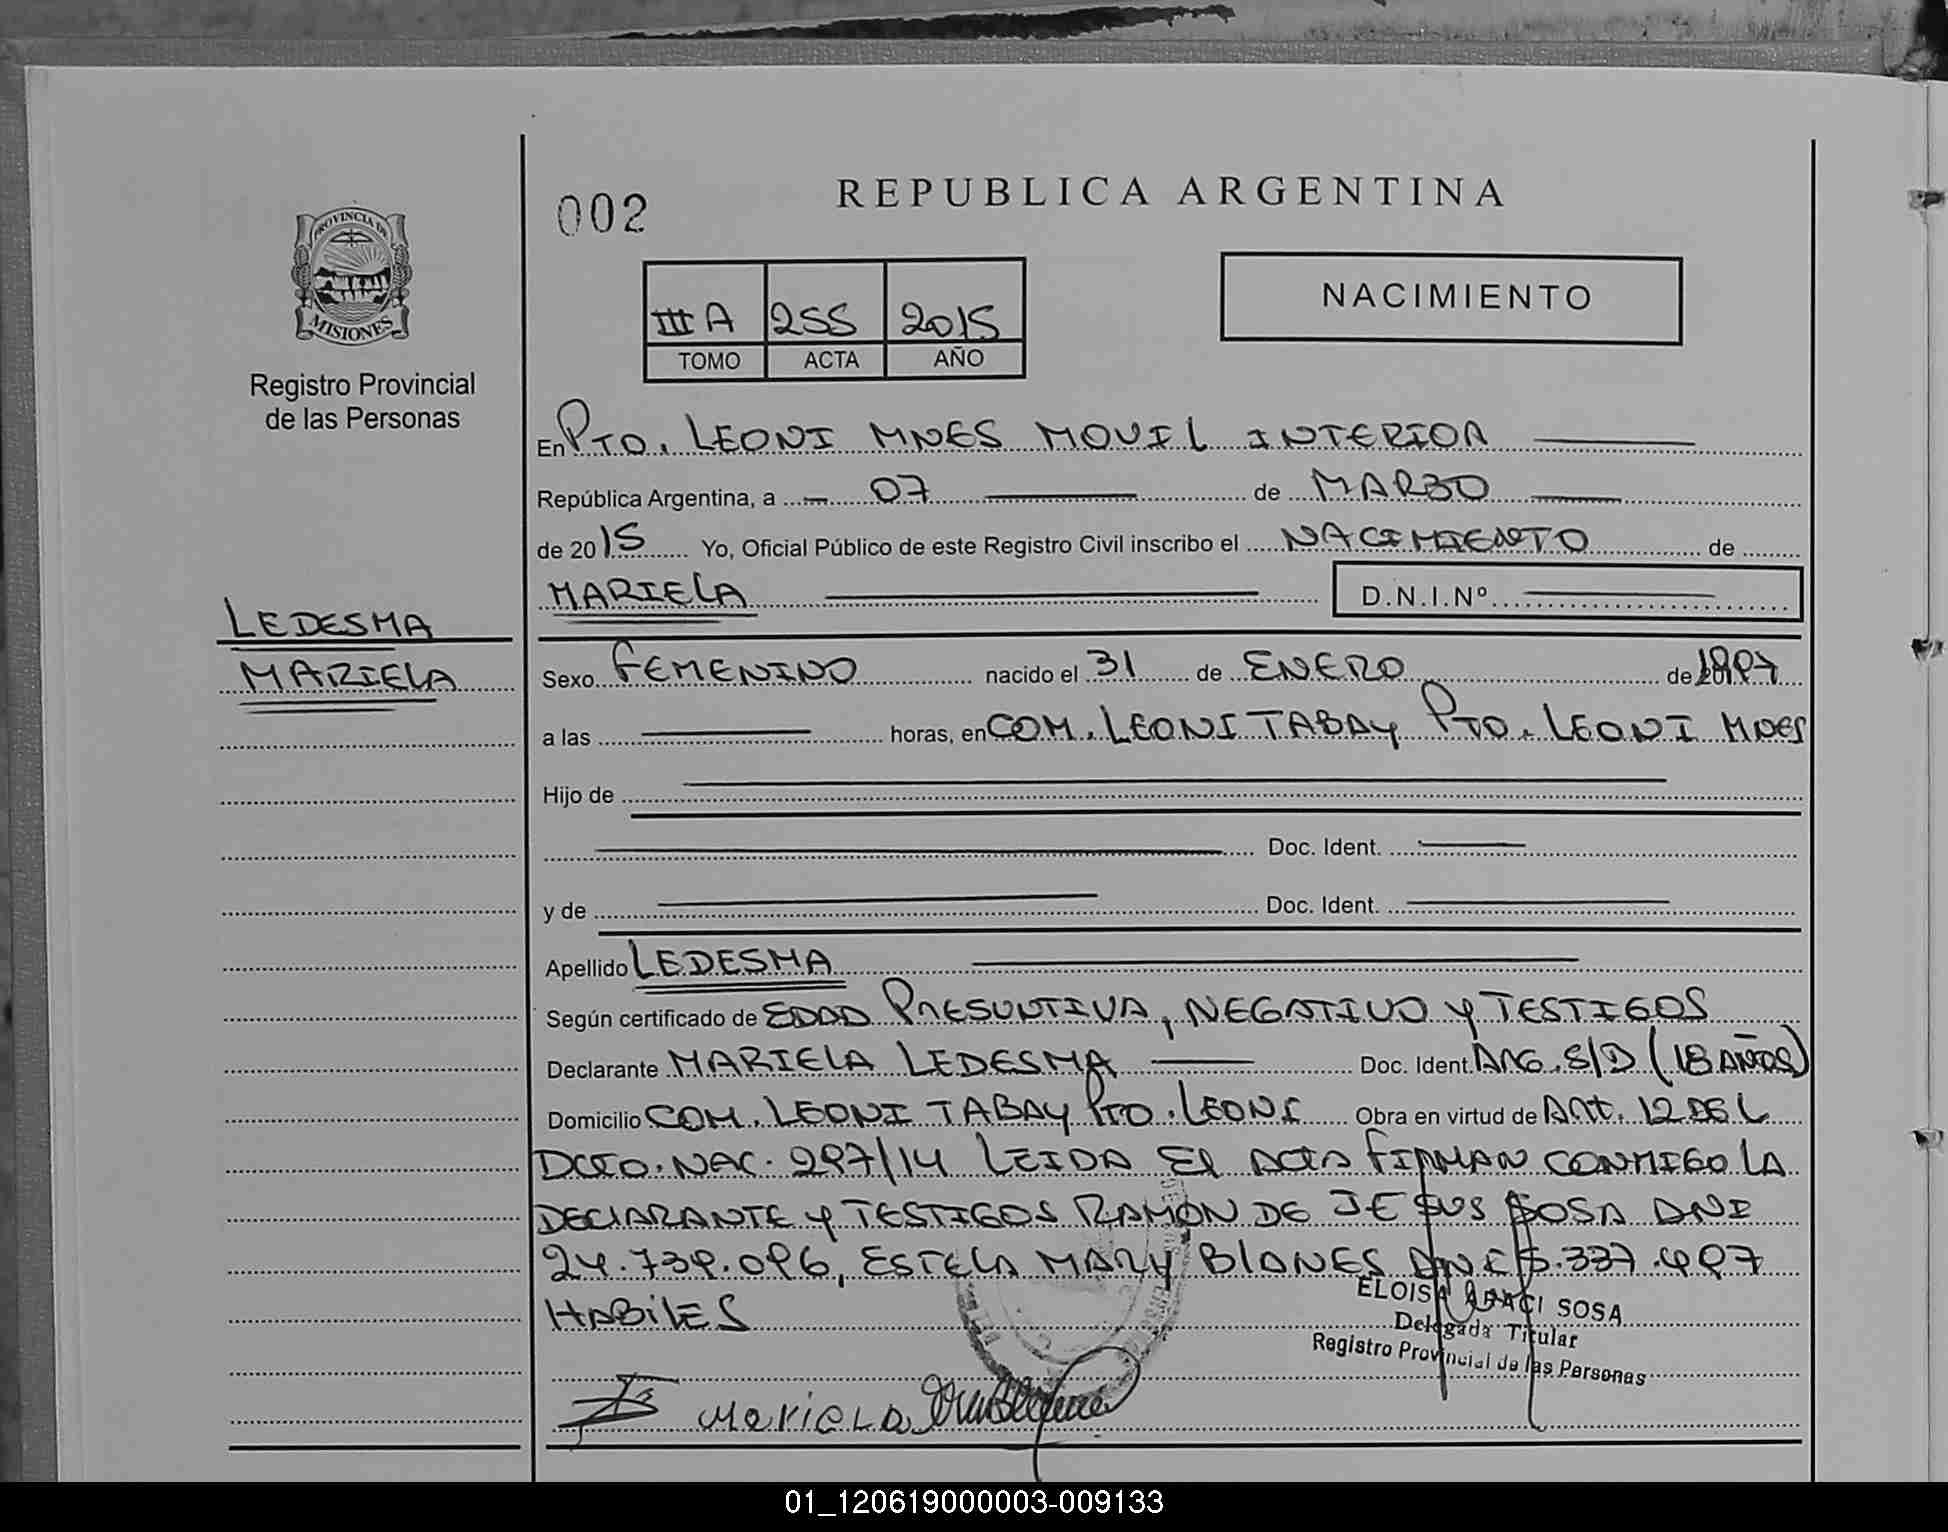 REPUBLICA ARGENTINA
002
PROVINCIA DE
MISIONES
Registro Provincial
de las Personas
NACIMIENTO
III A 255 2015
TOMO ACTA AÑO
En PTO. LEONI MNES MOVIL INTERIOR
República Argentina, a 07 de MARZO
de 2015 Yo, Oficial Público de este Registro Civil inscribo el NACIMIENTO de
MARIELA D.N.I.Nº
LEDESMA
MARIELA
Sexo FEMENINO nacido el 31 de ENERO de 1997
a las horas, en COM. LEONI TABAY PTO. LEONI MNES
Hijo de
Doc. Ident.
y de Doc. Ident.
Apellido LEDESMA
Según certificado de EDAD PRESUNTIVA, NEGATIVO Y TESTIGOS
Declarante MARIELA LEDESMA Doc. Ident. ARG. S/D (18 AÑOS)
Domicilio COM. LEONI TABAY PTO. LEONI Obra en virtud de ART. 12 DEL
DCTO. NAC. 297/14 LEIDA EL ACTA FIRMAN CONMIGO LA
DECLARANTE Y TESTIGOS RAMON DE JESUS SOSA DNI
24.739.096, ESTELA MARY BLANES DNI 5.337.497
HABILES
ELOISA ARACI SOSA
Delegada Titular
Registro Provincial de las Personas
MARIELA
01_120619000003-009133